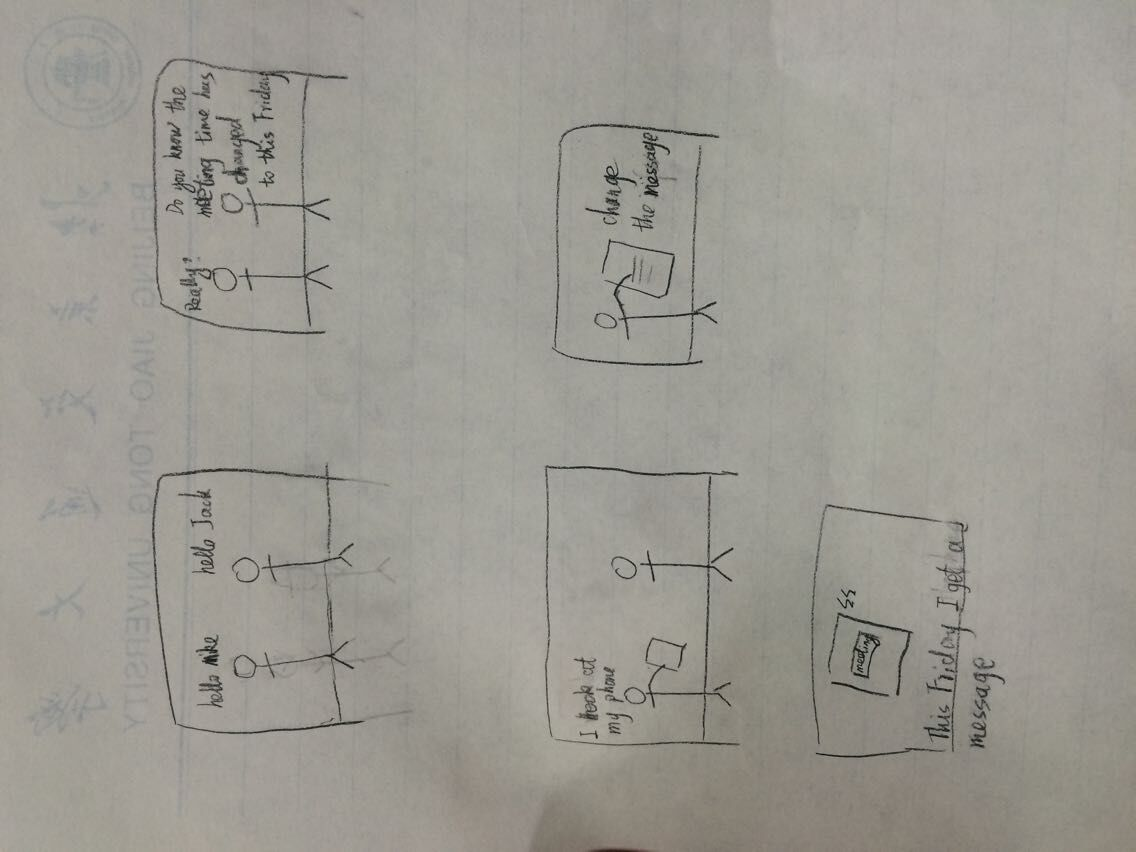 北京交通大学
BEIJING JIAO TONG UNIVERSITY
hello Mike
hello Jack
Really?
Do you know the
meeting time has
changed
to this Friday
I look at
my phone
change
the message
meeting
This Friday I get a
message